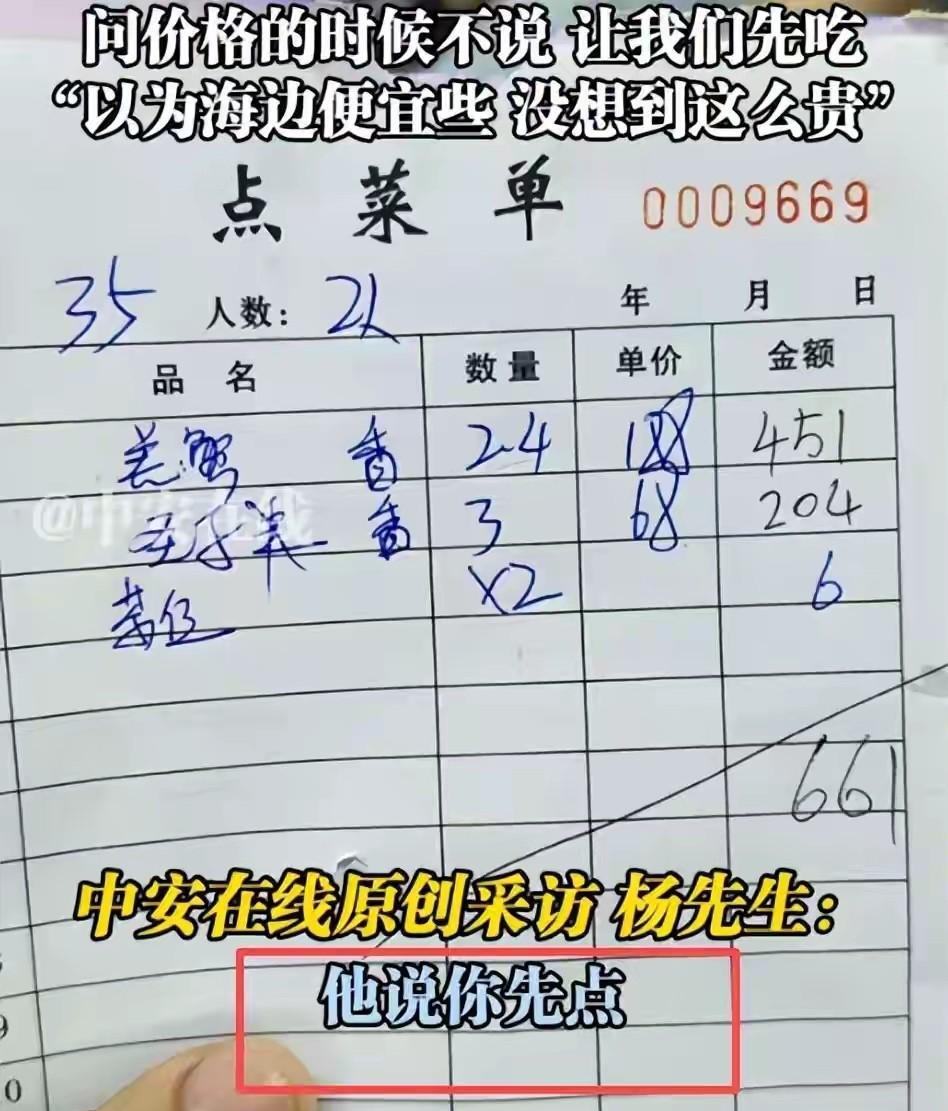 问价格的时候不说 让我们先吃
“以为海边便宜些 没想到这么贵”
点菜单 0009669
35 人数: 2人 年 月 日
品名 数量 单价 金额
羔蟹 香 2.4 188 451
香 3 68 204
茶位 x2 6
@中安在线
661
中安在线原创采访 杨先生:
他说你先点
9
0